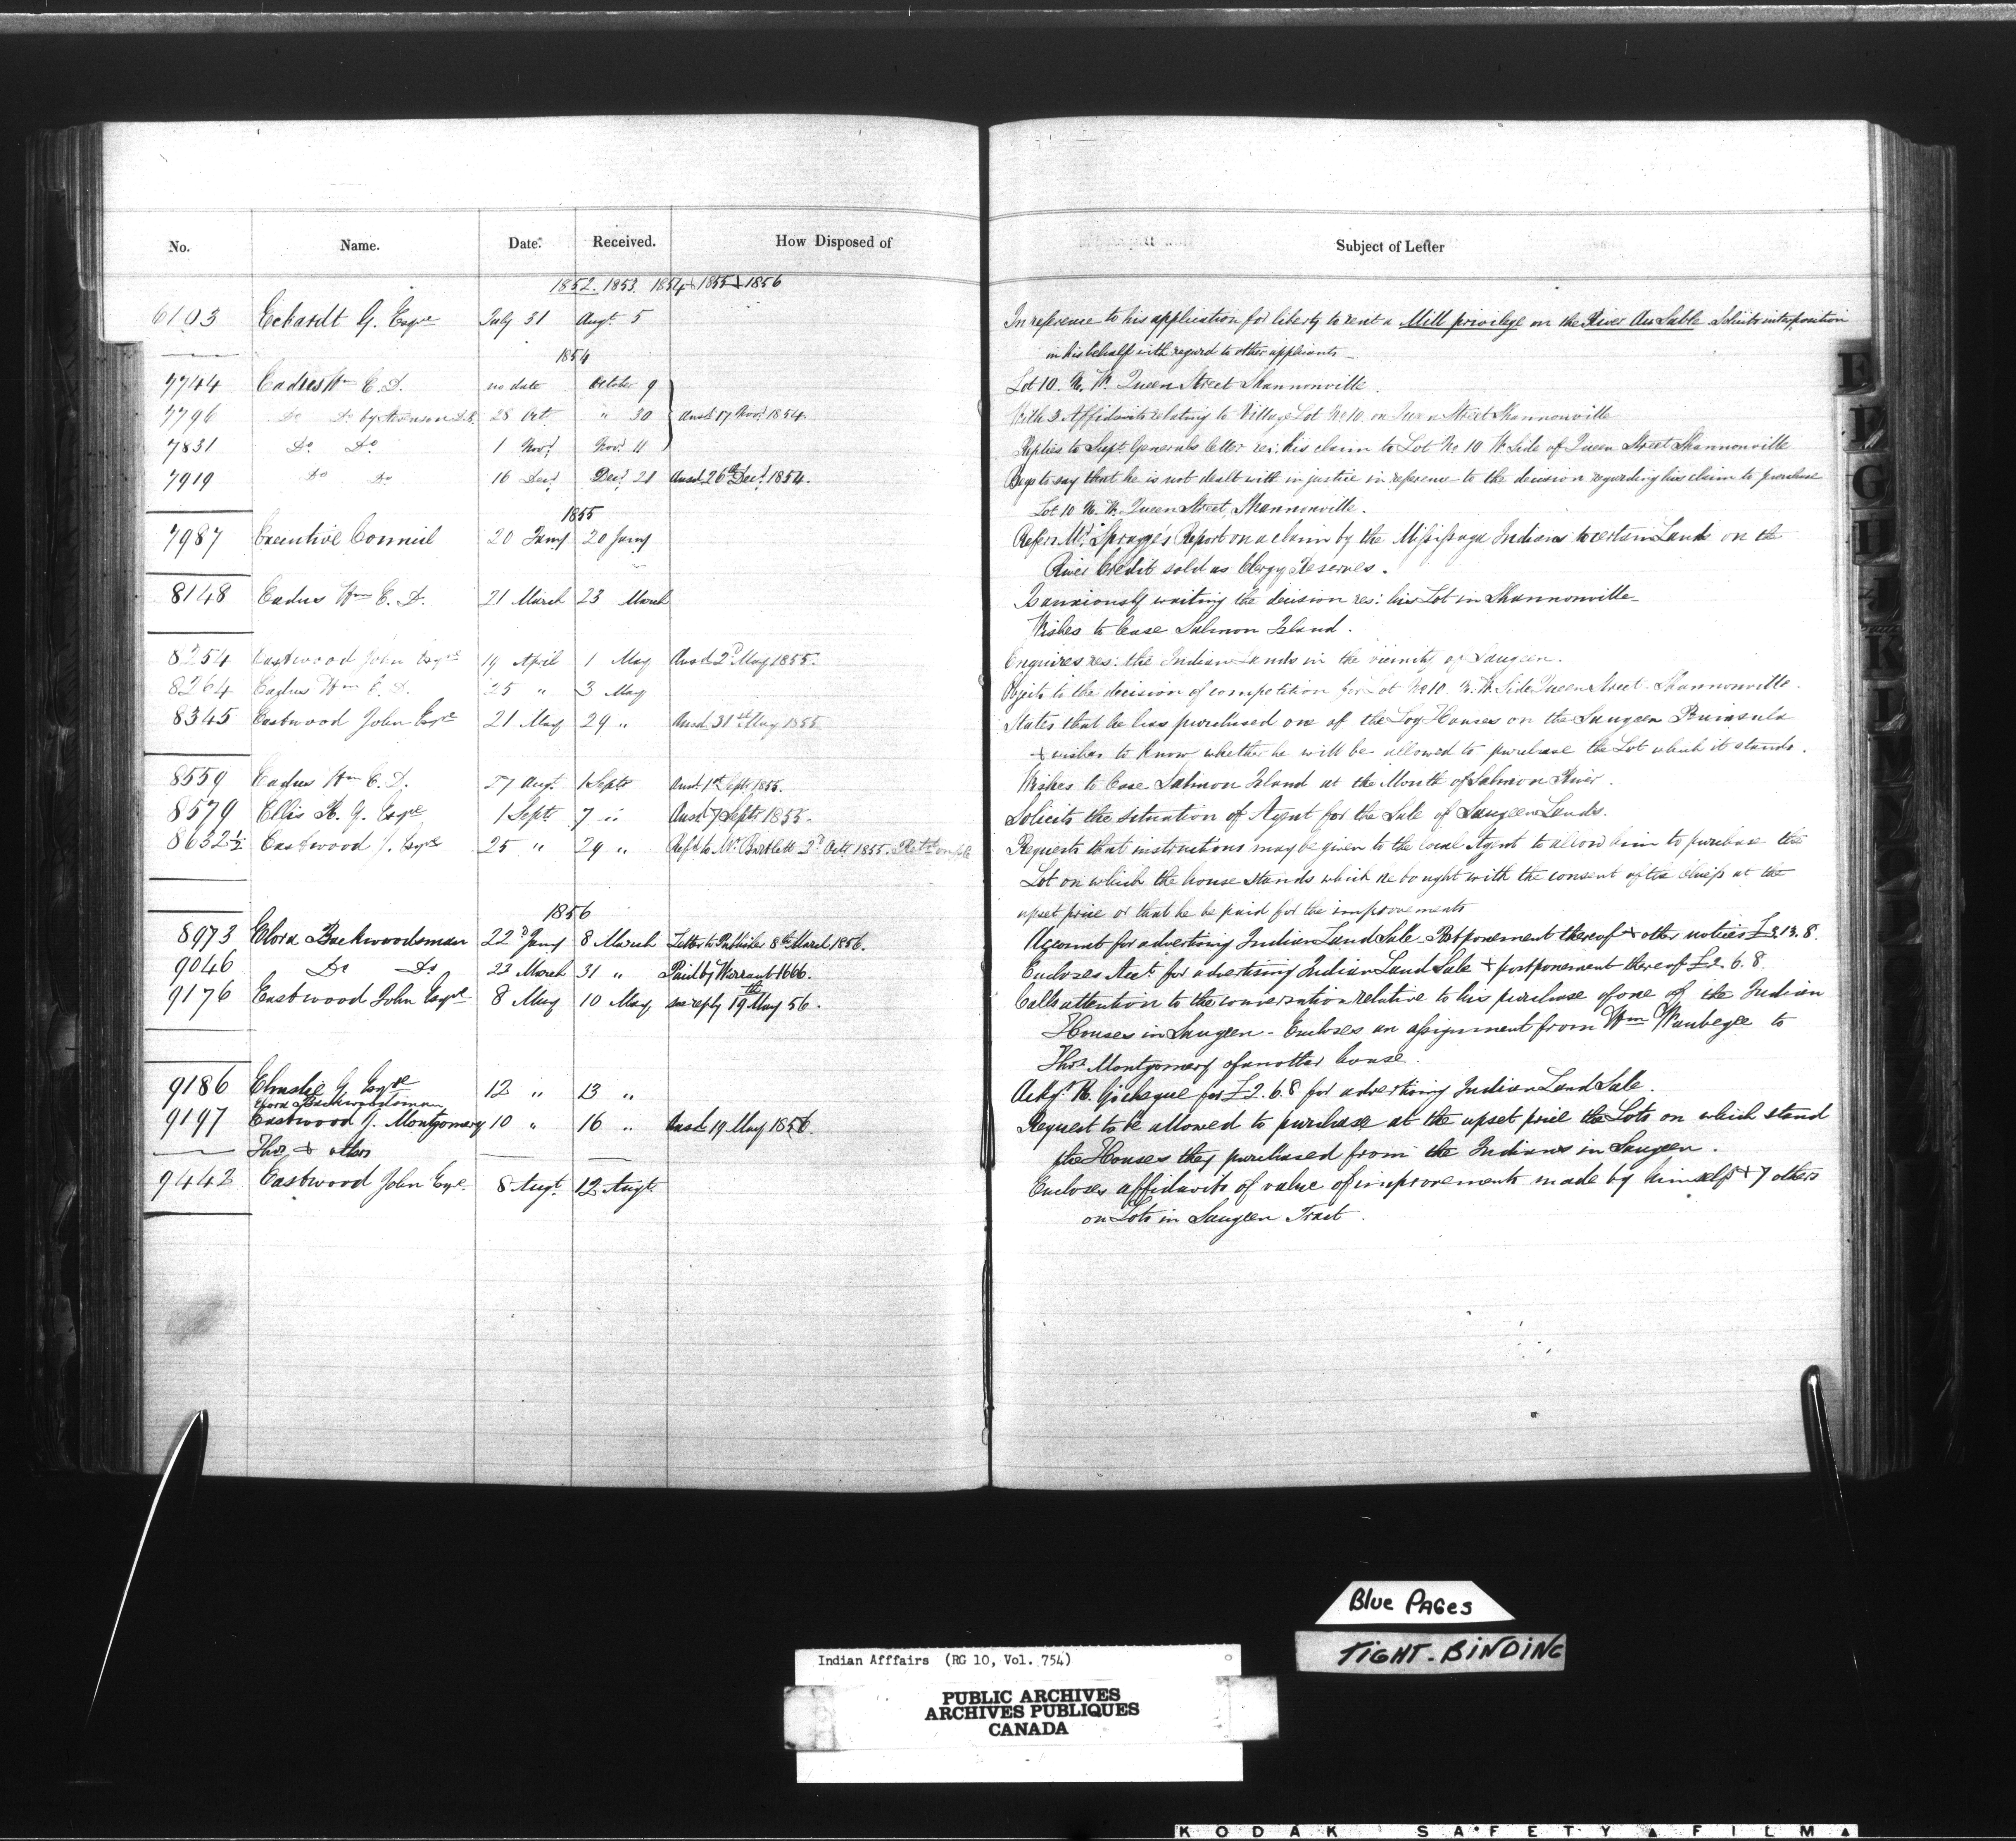 No. Name. Date. Received. How Disposed of Subject of Letter
1852. 1853. 1854 + 1855 + 1856
6103 Eckardt G. Esqre July 31 Augt. 5 In reference to his application for liberty to rent a Mill privilege on the River Au Sable Solicits interposition
in his behalf with regard to other applicants
1854
7744 Eadus Wm C. D. no date October 9 Lot 10. N. W. Queen Street Shannonville.
7796 Do Do by 28 Oct. " 30 Ansd. 17 Novr. 1854. With 3 Affidavits relating to Village Lot No 10. on Queen Street Shannonville
7831 Do Do 1 Novr. Novr. 11 Replies to Supt. Generals letter res: his claim to Lot No 10 W. Side of Queen Street Shannonville
7919 Do Do 16 Decr. Decr. 21 Ansd. 26th Decr. 1854. Begs to say that he is not dealt with in justice in reference to the decision regarding his claim to purchase
Lot 10 N. W. Queen Street, Shannonville.
1855
7987 Executive Council 20 Jany 20 Jany Refers Mr. Spragge's Report on a claim by the Missisaga Indians to certain Lands on the
River Credit sold as Clergy Reserves.
8148 Eadus Wm C. D. 21 March 23 March Is anxiously waiting the decision res: his Lot in Shannonville
Wishes to lease Salmon Island.
8254 Eastwood John Esqre 19 April 1 May Ansd. 2d May 1855. Enquires res: the Indian Lands in the vicinity of Saugeen.
8264 Eadus Wm C. D. 25 " 3 May to the decision of competition for Lot No 10. N. W. Side Queen Street Shannonville.
8345 Eastwood John Esqre 21 May 29 " Ansd. 31st May 1855 States that he has purchased one of the Log Houses on the Saugeen Peninsula
+ wishes to know whether he will be allowed to purchase the Lot which it stands.
8559 Eadus Wm C. D. 27 Augt. 1 Septr Ansd. 1st Sept. 1855. Wishes to lease Salmon Island at the Mouth of Salmon River.
8579 Ellis H. G. Esqre 1 Sept. 7 " Ansd. 7 Septr 1855. Solicits the situation of Agent for the Sale of Saugeen Lands.
8632½ Eastwood J. Esqre 25 " 29 " Refd. to Mr. Bartlett 2d Octr. 1855. Requests that instructions may be given to the local Agent to allow him to purchase the
Lot on which the house stands which he bought with the consent of the Chiefs at the
upset price or that he be paid for the improvements
1856
8973 Elora Backwoodsman 22d Jany 8 March Letter to Publisher 8th March 1856. Account for advertising Indian Land Sale. Postponement thereof + other notices £3.13.8.
9046 Do Do 23 March 31 " Paid by Warrant 1666. Encloses Acct. for advertising Indian Land Sale + postponement thereof £2.6.8.
9176 Eastwood John Esqre 8 May 10 May see reply 19th May 56. Calls attention to the conversation relative to his purchase of one of the Indian
Houses in Saugeen - Encloses an assignment from Wm Waubegee to
Thos. Montgomery of another house.
9186 Elmslie G. Esqre 12 " 13 " Ackgs. R. Gs cheque for £2.6.8 for advertising Indian Land Sale.
Elora Backwoodsman
9197 Eastwood J. Montgomery 10 " 16 " Ansd. 19 May 1856. Request to be allowed to purchase at the upset price the Lots on which stand
Thos. + others the Houses they purchased from the Indians in Saugeen.
9442 Eastwood John Esqe. 8 Augt. 12 Augt. Encloses affidavits of value of improvements made by himself + 7 others
on Lots in Saugeen Tract.
E
F
G
H
K
L
Blue PAGES
TIGHT-BINDING
Indian Afffairs (RG 10, Vol. 754)
PUBLIC ARCHIVES
ARCHIVES PUBLIQUES
CANADA
KODAK SAFETY FILM